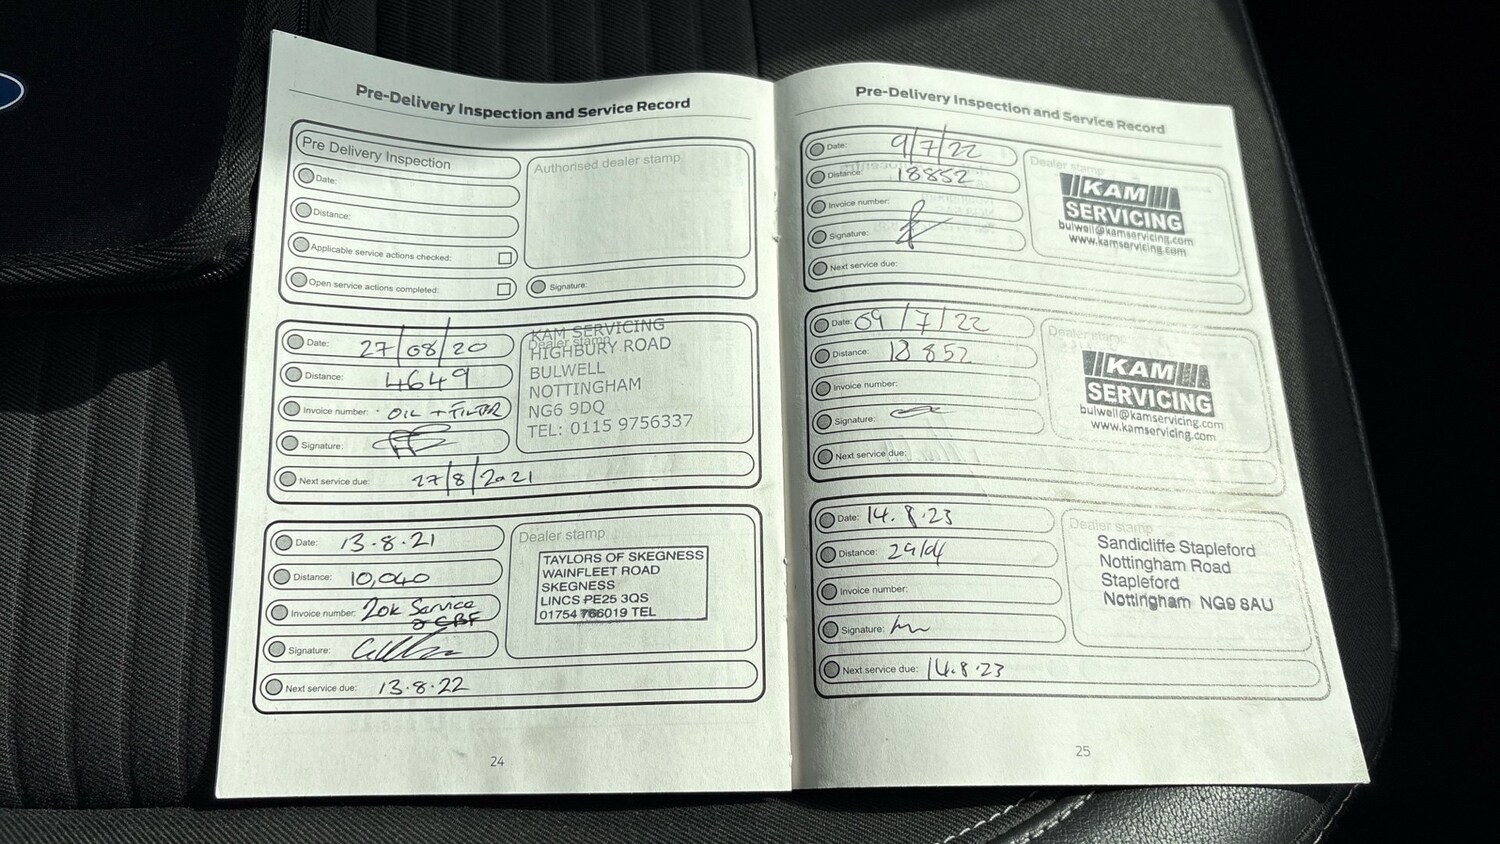 Pre-Delivery Inspection and Service Record
Pre Delivery Inspection
Date:
Distance:
Applicable service actions checked:
Open service actions completed:
Authorised dealer stamp
Signature:
Date: 27/08/20
Distance: 4649
Invoice number: OIL + FILTER
Signature:
Next service due: 27/8/2021
Dealer stamp
KAM SERVICING
HIGHBURY ROAD
BULWELL
NOTTINGHAM
NG6 9DQ
TEL: 0115 9756337
Date: 13.8.21
Distance: 10,040
Invoice number: 20k Service
Signature:
Next service due: 13.8.22
Dealer stamp
TAYLORS OF SKEGNESS
WAINFLEET ROAD
SKEGNESS
LINCS PE25 3QS
01754 766019 TEL
24
Pre-Delivery Inspection and Service Record
Date: 9/7/22
Distance: 18852
Invoice number:
Signature:
Next service due:
Dealer stamp
KAM
SERVICING
bulwell@kamservicing.com
www.kamservicing.com
Date: 09/7/22
Distance: 18852
Invoice number:
Signature:
Next service due:
Dealer stamp
KAM
SERVICING
bulwell@kamservicing.com
www.kamservicing.com
Date: 14.8.23
Distance:
Invoice number:
Signature:
Next service due: 14.8.23
Dealer stamp
Sandicliffe Stapleford
Nottingham Road
Stapleford
Nottingham NG9 8AU
25